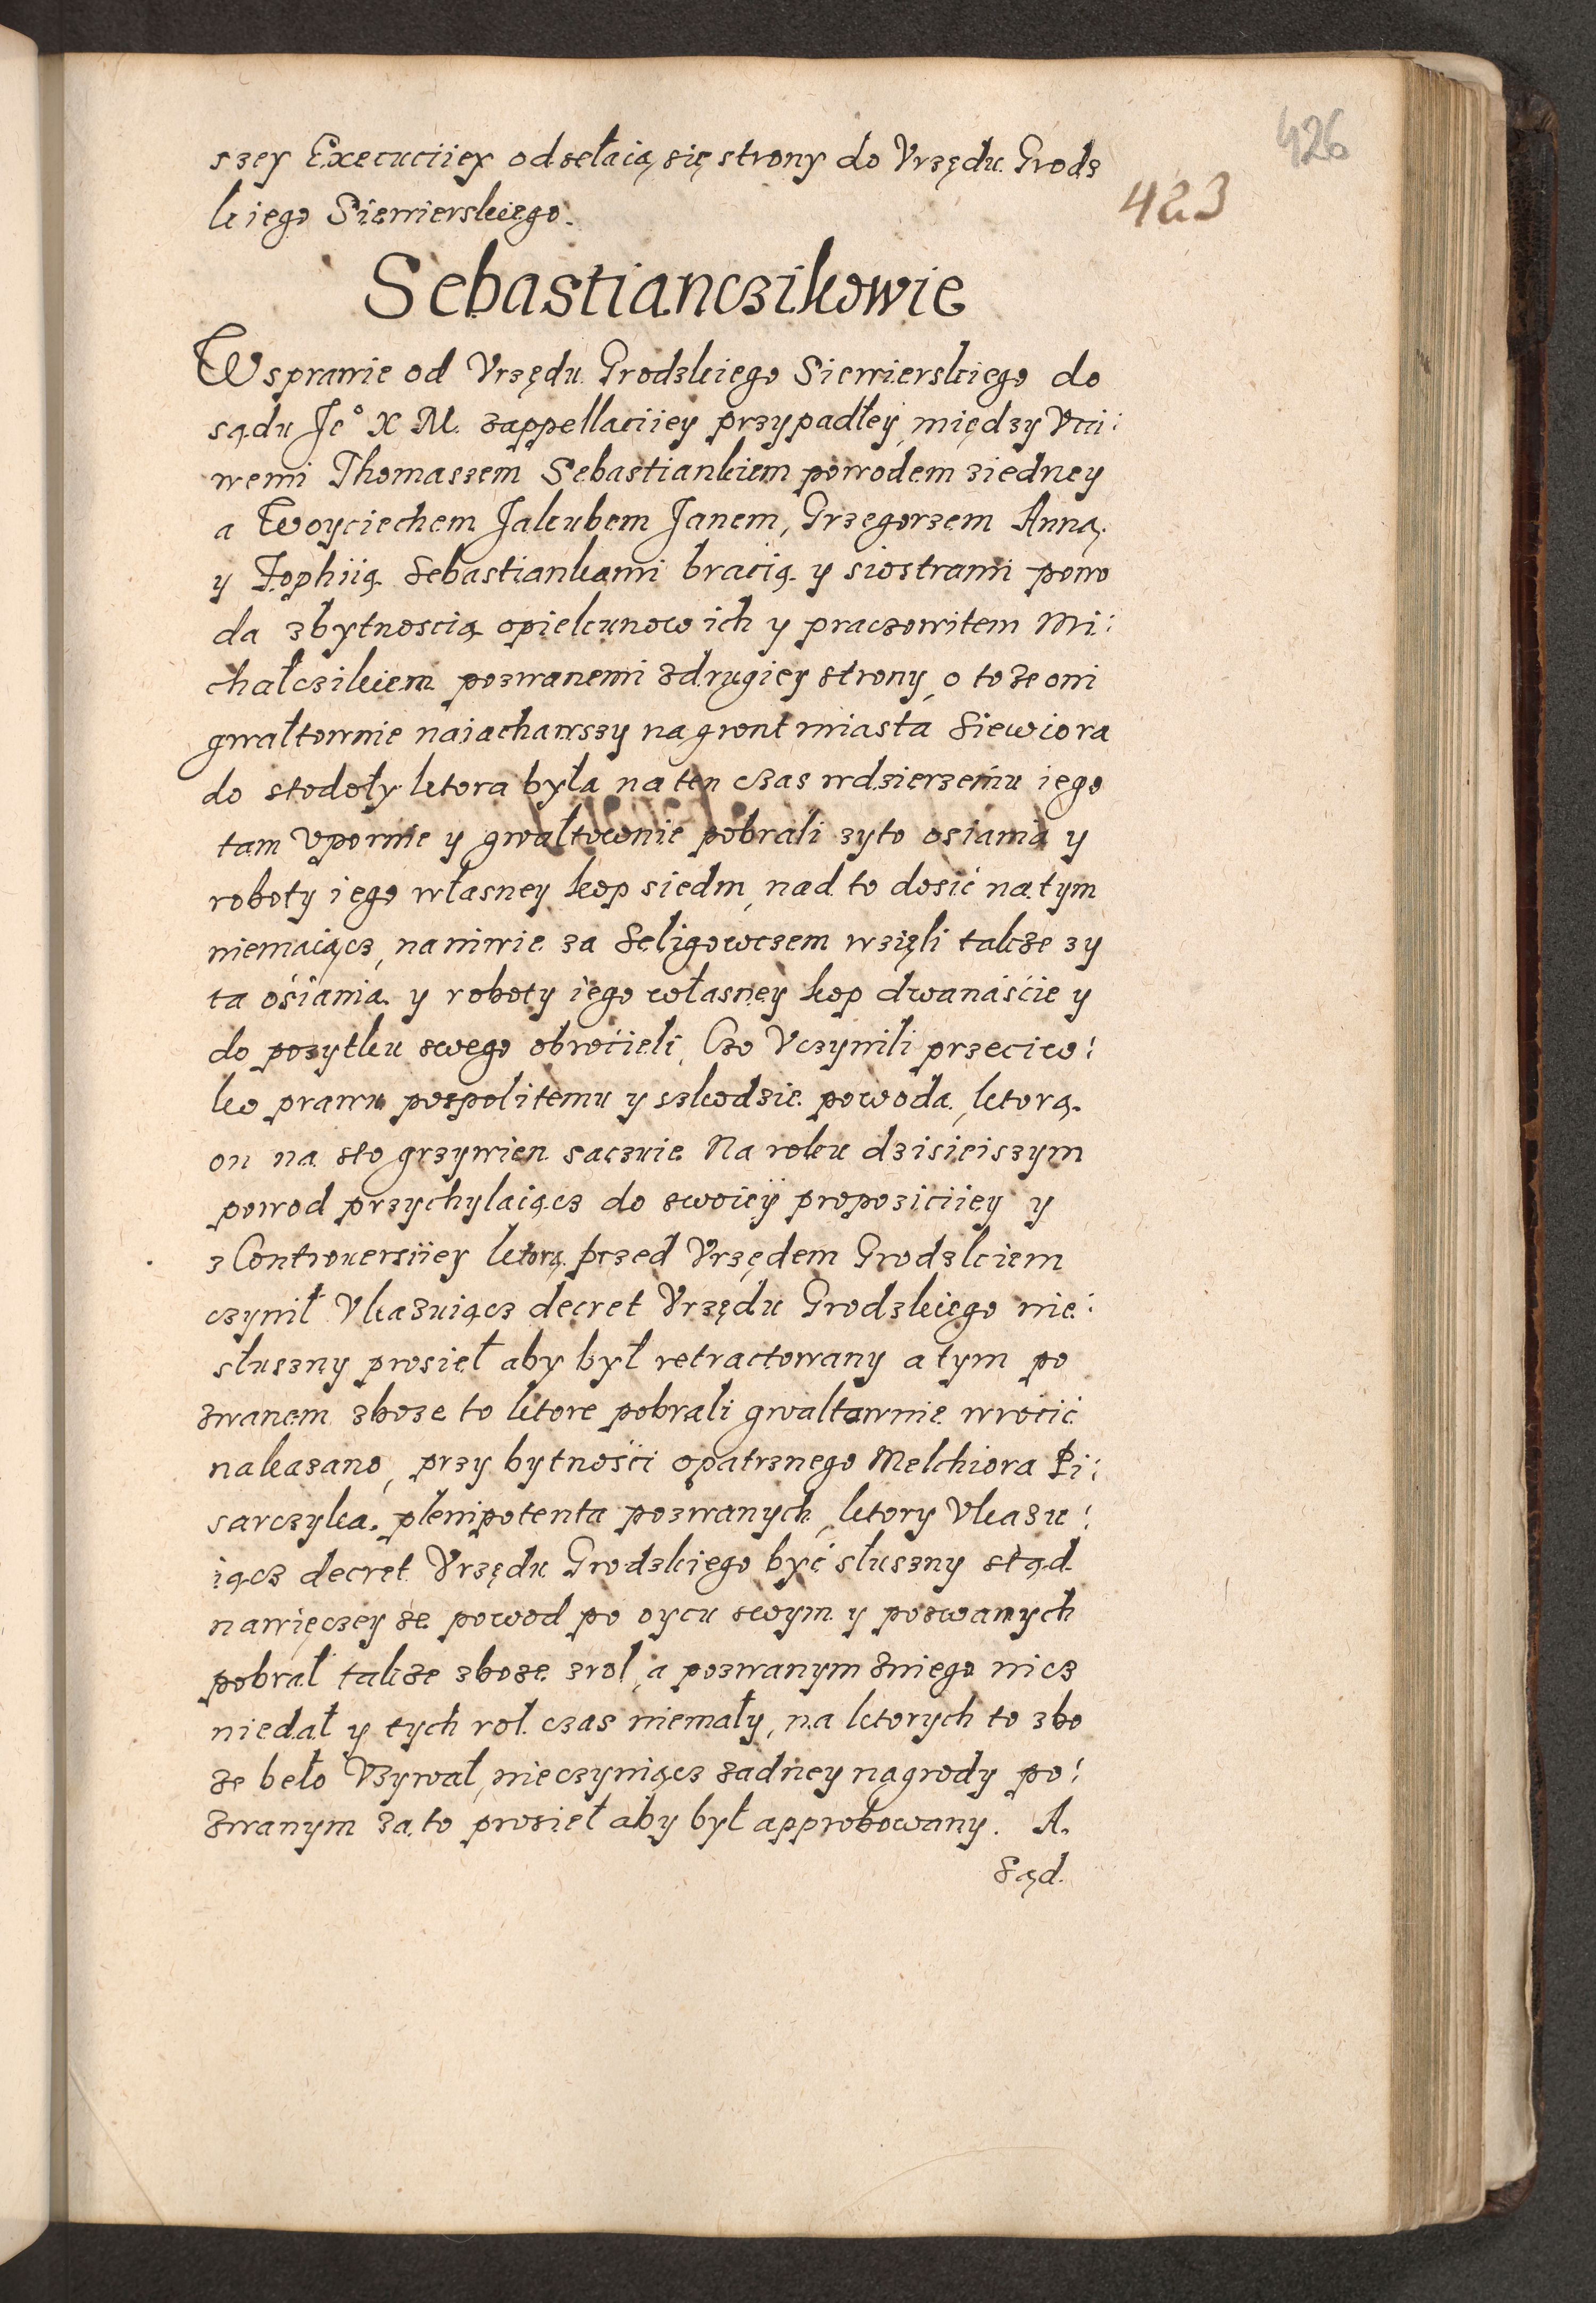 426
423
szey Execuciiey odsełaią się strony do Vrzędu Grodz
kiego Siewierskiego.
Sebastianczikowie
W sprawie od Vrzędu Grodzkiego Siewierskiego do
sądu Je° X M. zappellaciiey przypadłey, między Vcci:
wemi Thomaszem Sebastiankiem powodem ziedney
a Woyciechem Jakubem Janem, Grzegorzem Anną
y Zophiią Sebastiankami bracią y siostrami powo
da zbytnoscią opiekunow ich y praczowitem Mi:
chałczikiem pozwanemi zdrugiey strony, o to ze oni
gwałtownie naiachawszy na gront miasta Siewiora
do stodoły ktora była na ten czas wdzierzeniu iego
tam vpornie y gwałtownie pobrali zyto osiania y
roboty iego własney kop siedm, nad to dosić na tym
niemaiącz, naniwie za Seligowczem wzięli takze zy
ta ośiania y roboty iego własney kop dwanaśćie y
do pozytku swego obroćieli, Czo Vczynili przeciw:
ko prawu pospolitemu y szkodzie powoda, ktorą
on na sto grzywien saczuie Na roku dzisieiszym
powod przychylaiącz do swoiey propoziciiey y
z Controuersiiey ktorą przed Vrzędem Grodzkiem
czynił Vkazuiącz decret Vrzędu Grodzkiego nie:
słuszny prosieł aby był retractowany a tym po
zwanem zboze to ktore pobrali gwałtownie wrocić
nakazano, przy bytnośći opatrznego Melchiora Pi:
sarczyka plenipotenta pozwanych, ktory Vkazu:
iącz decret Vrzędu Grodzkiego być słuszny stąd
nawięczey ze powod po oycu swym y pozwanych
pobrał takze zboze zrol, a pozwanym zniego nicz
niedał y tych rol czas niemały, na ktorych to zbo
ze beło Vzywał, nieczyniącz zadney nagrody po:
zwanym za to prosieł aby był approbowany. A.
Sąd.